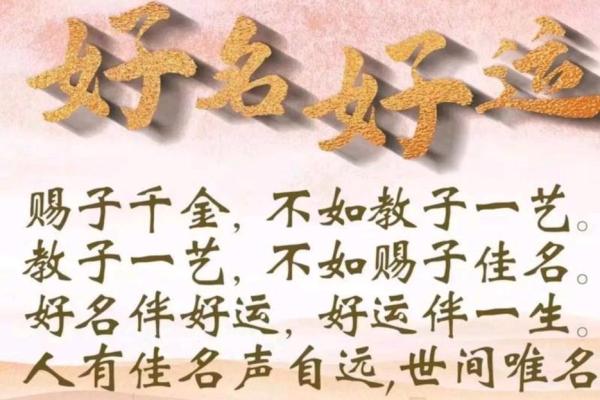 好名好运
赐子千金，不如教子一艺。
教子一艺，不如赐子佳名。
好名伴好运，好运伴一生。
人有佳名声自远,世间唯名